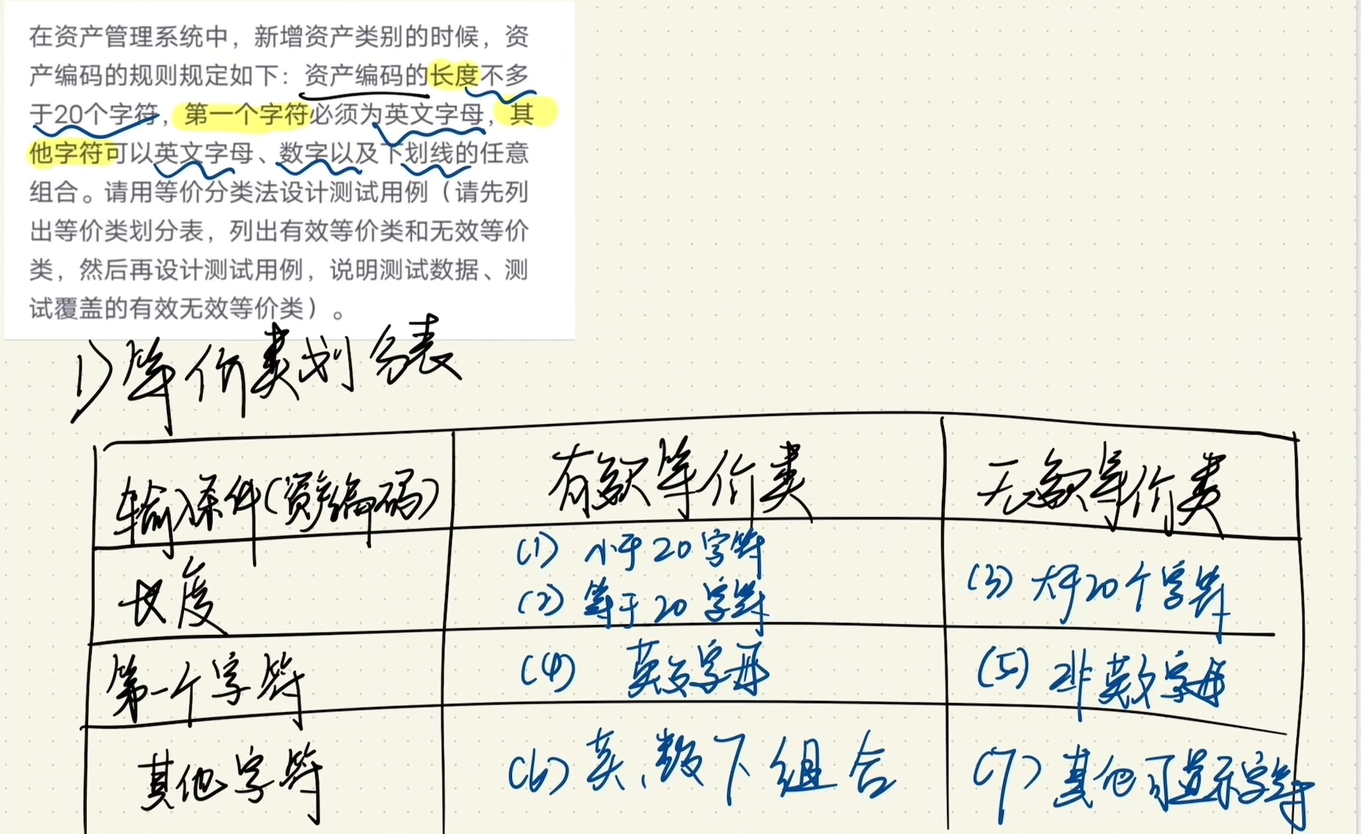 在资产管理系统中，新增资产类别的时候，资
产编码的规则规定如下：资产编码的长度不多
于20个字符，第一个字符必须为英文字母，其
他字符可以英文字母、数字以及下划线的任意
组合。请用等价分类法设计测试用例（请先列
出等价类划分表，列出有效等价类和无效等价
类，然后再设计测试用例，说明测试数据、测
试覆盖的有效无效等价类）。
1) 等价类划分表
输入条件(资产编码) 有效等价类 无效等价类
(1) 小于20字符
长度 (2) 等于20字符 (3) 大于20个字符
第一个字符 (4) 英文字母 (5) 非英文字母
其他字符 (6) 英、数下组合 (7) 其他可显示字符